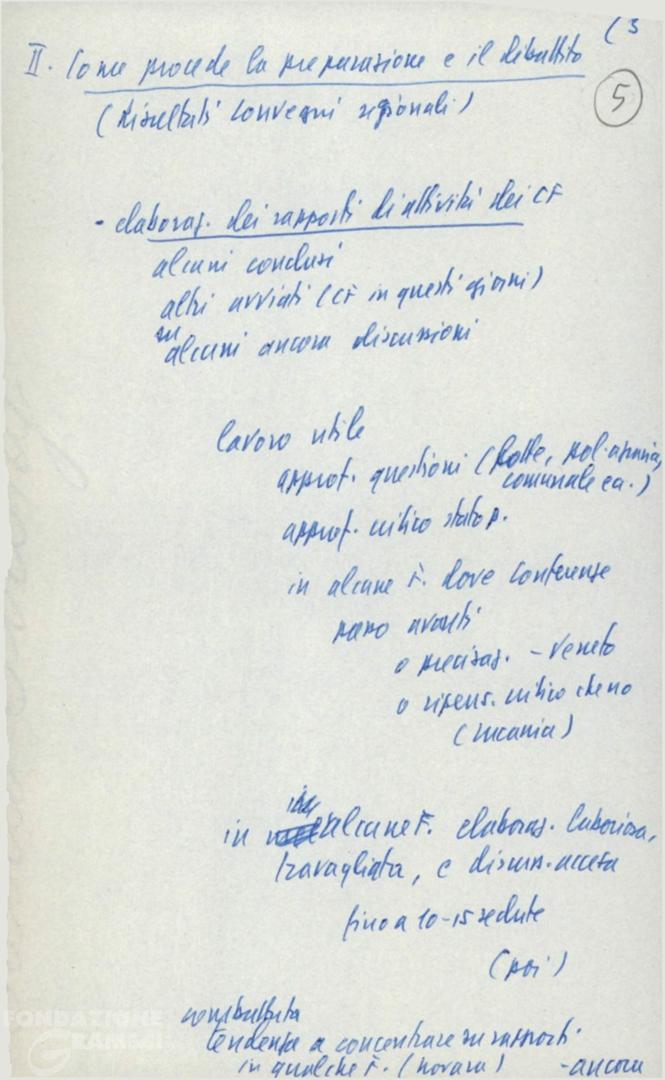 (3
5
II. Come procede la preparazione e il dibattito
(risultati convegni regionali)
- elaboraz. dei rapporti di attività dei CF
alcuni conclusi
altri avviati (CF in questi giorni)
su
alcuni ancora discussioni
lavoro utile
approf. questioni (lotte, pol. agraria,
comunale ecc.)
approf. critico stato p.
in alcune F. dove conferenze
sono avanti
o precisaz. - Veneto
o ripens. critico che no
(Lucania)
in alcune F. elaboraz. laboriosa,
travagliata, e discuss. accesa
fino a 10-15 sedute
(poi)
combattuta
tendenza a concentrare su rapporti
in qualche F. (Novara) - ancora
FONDAZIONE
GRAMSCI